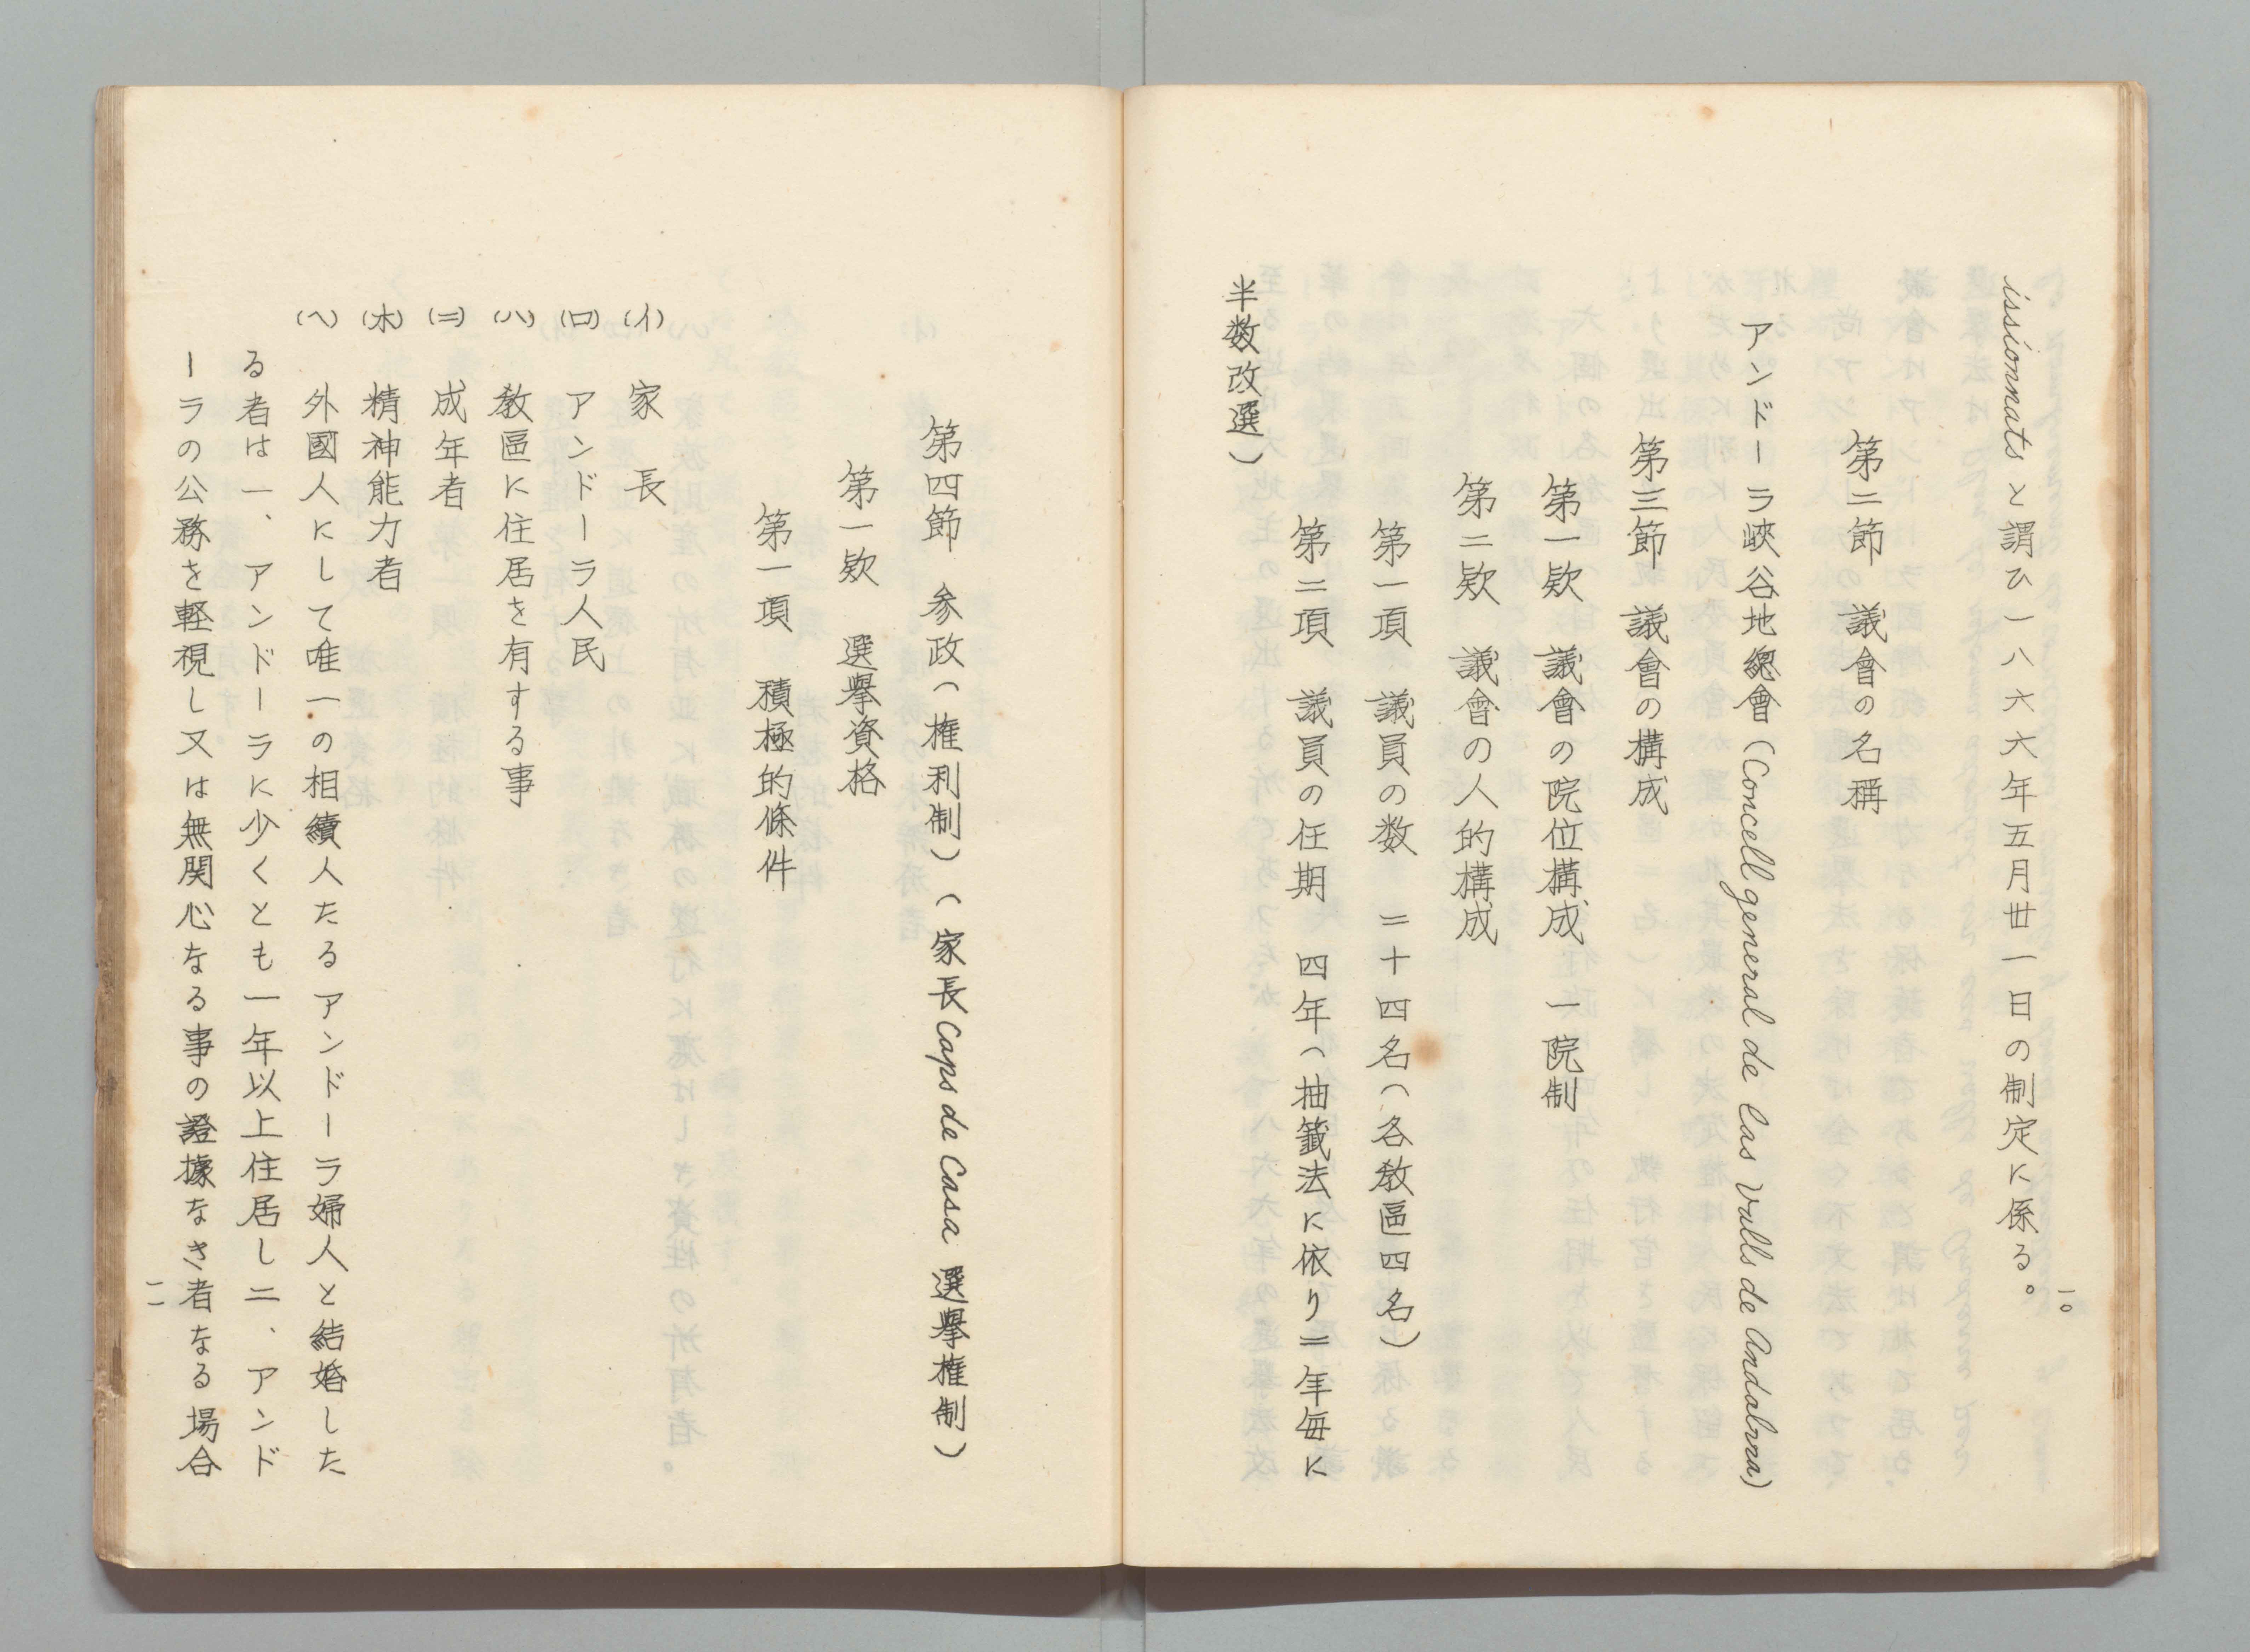 issionnats と謂ひ一八六六年五月丗一日の制定に係る。
一〇
第二節　議會の名稱
アンドーラ峽谷地總會(Concell general de las Valls de Andalrra)
第三節　議會の構成
第一欵　議會の院位構成　一院制
第二欵　議會の人的構成
第一項　議員の数　二十四名（各敎區四名）
第二項　議員の任期　四年（抽籤法に依り二年毎に
半数改選）
第四節　参政（権利制）（家長Caps de Casa 選擧権制）
第一欵　選擧資格
第一項　積極的條件
(イ)　家　長
(ロ)　アンドーラ人民
(ハ)　敎區に住居を有する事
(ニ)　成年者
(ホ)　精神能力者
(ヘ)　外國人にして唯一の相續人たるアンドーラ婦人と結婚した
る者は一、アンドーラに少くとも一年以上住居し二、アンド
ーラの公務を軽視し又は無関心なる事の證據なき者なる場合
一一